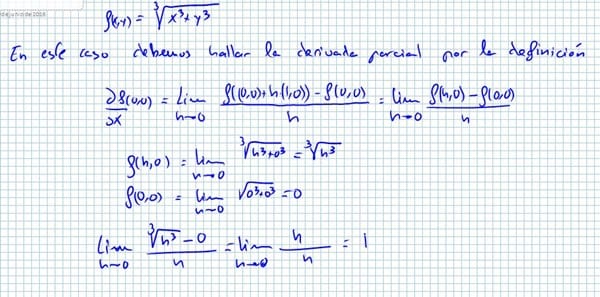 de junio de 2016
f(x,y) = ∛(x³+y³)
En este caso debemos hallar la derivada parcial por la definición
∂f(0,0)/∂x = Lim h→0 (f((0,0)+h(1,0)) - f(0,0))/h = lim h→0 (f(h,0) - f(0,0))/h
f(h,0) = lim h→0 ∛(h³+0³) = ∛h³
f(0,0) = lim h→0 √(0³+0³) = 0
Lim h→0 (∛h³ - 0)/h = lim h→0 h/h = 1